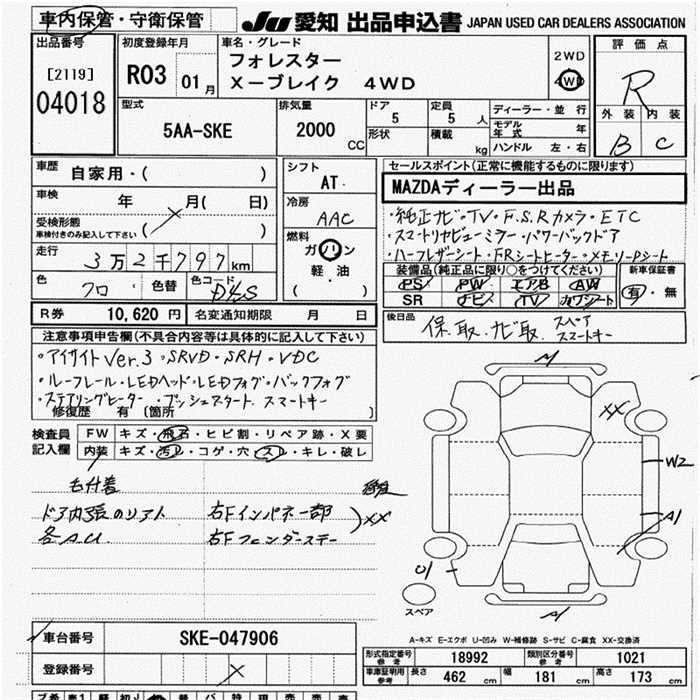 車内保管・守衛保管
JU 愛知 出品申込書 JAPAN USED CAR DEALERS ASSOCIATION
出品番号
[2119]
04018
初度登録年月
R03 01月
車名・グレード
フォレスター
X－ブレイク 4WD
2WD
4WD
評価点
R
外装 内装
B C
型式
5AA-SKE
排気量
2000 CC
ドア
5
形状
定員
5 人
積載
kg
ディーラー・並行
モデル年式 年
ハンドル 左・右
車歴
自家用・( )
車検
年 月( 日)
受検形態
車検付きのみ記入して下さい ( )
走行
3万2千797km
色 クロ 色替 色コード D4S
シフト
AT
冷房
AAC
燃料
ガソリン
軽・油
( )
セールスポイント(正常に機能するものに限ります)
MAZDAディーラー出品
・純正ナビ・TV・F.S.Rカメラ・ETC
・スマートリヤビューミラー・パワーバックドア
・ハーフレザーシート・FRシートヒーター・メモリーPシート
装備品(純正品に限り○をつけてください)
PS PW エアB AW
SR ナビ TV カワシート
新車保証書
有・無
R券 10,620円 名変通知期限 月 日
後日品
保.取.ナビ取. スペア
スマートキー
注意事項申告欄(不具合内容等は具体的に記入して下さい)
・アイサイトVer.3・SRVD・SRH・VDC
・ルーフレール・LEDヘッド・LEDフォグ・バックフォグ
・ステアリングヒーター プッシュスタート スマートキー
修復歴 有 〔箇所 〕
検査員記入欄
FW キズ・飛石・ヒビ割・リペア跡・X要
内装 キズ・汚れ・コゲ・穴・スレ・キレ・破レ
毛付着
ドア内張のリアト
各A.U
右Fインパネ一部
右Fフェンダーステー
XX
M
XX
W2
A1
U1
A1
スペア
A-キズ E-エクボ U-凹み W-補修跡 S-サビ C-腐食 XX-交換済
車台番号 SKE-047906
登録番号
形式指定番号 参考 18992 類別区分番号 参考 1021
車庫証明用 参考 長さ 462 cm 幅 181 cm 高さ 173 cm